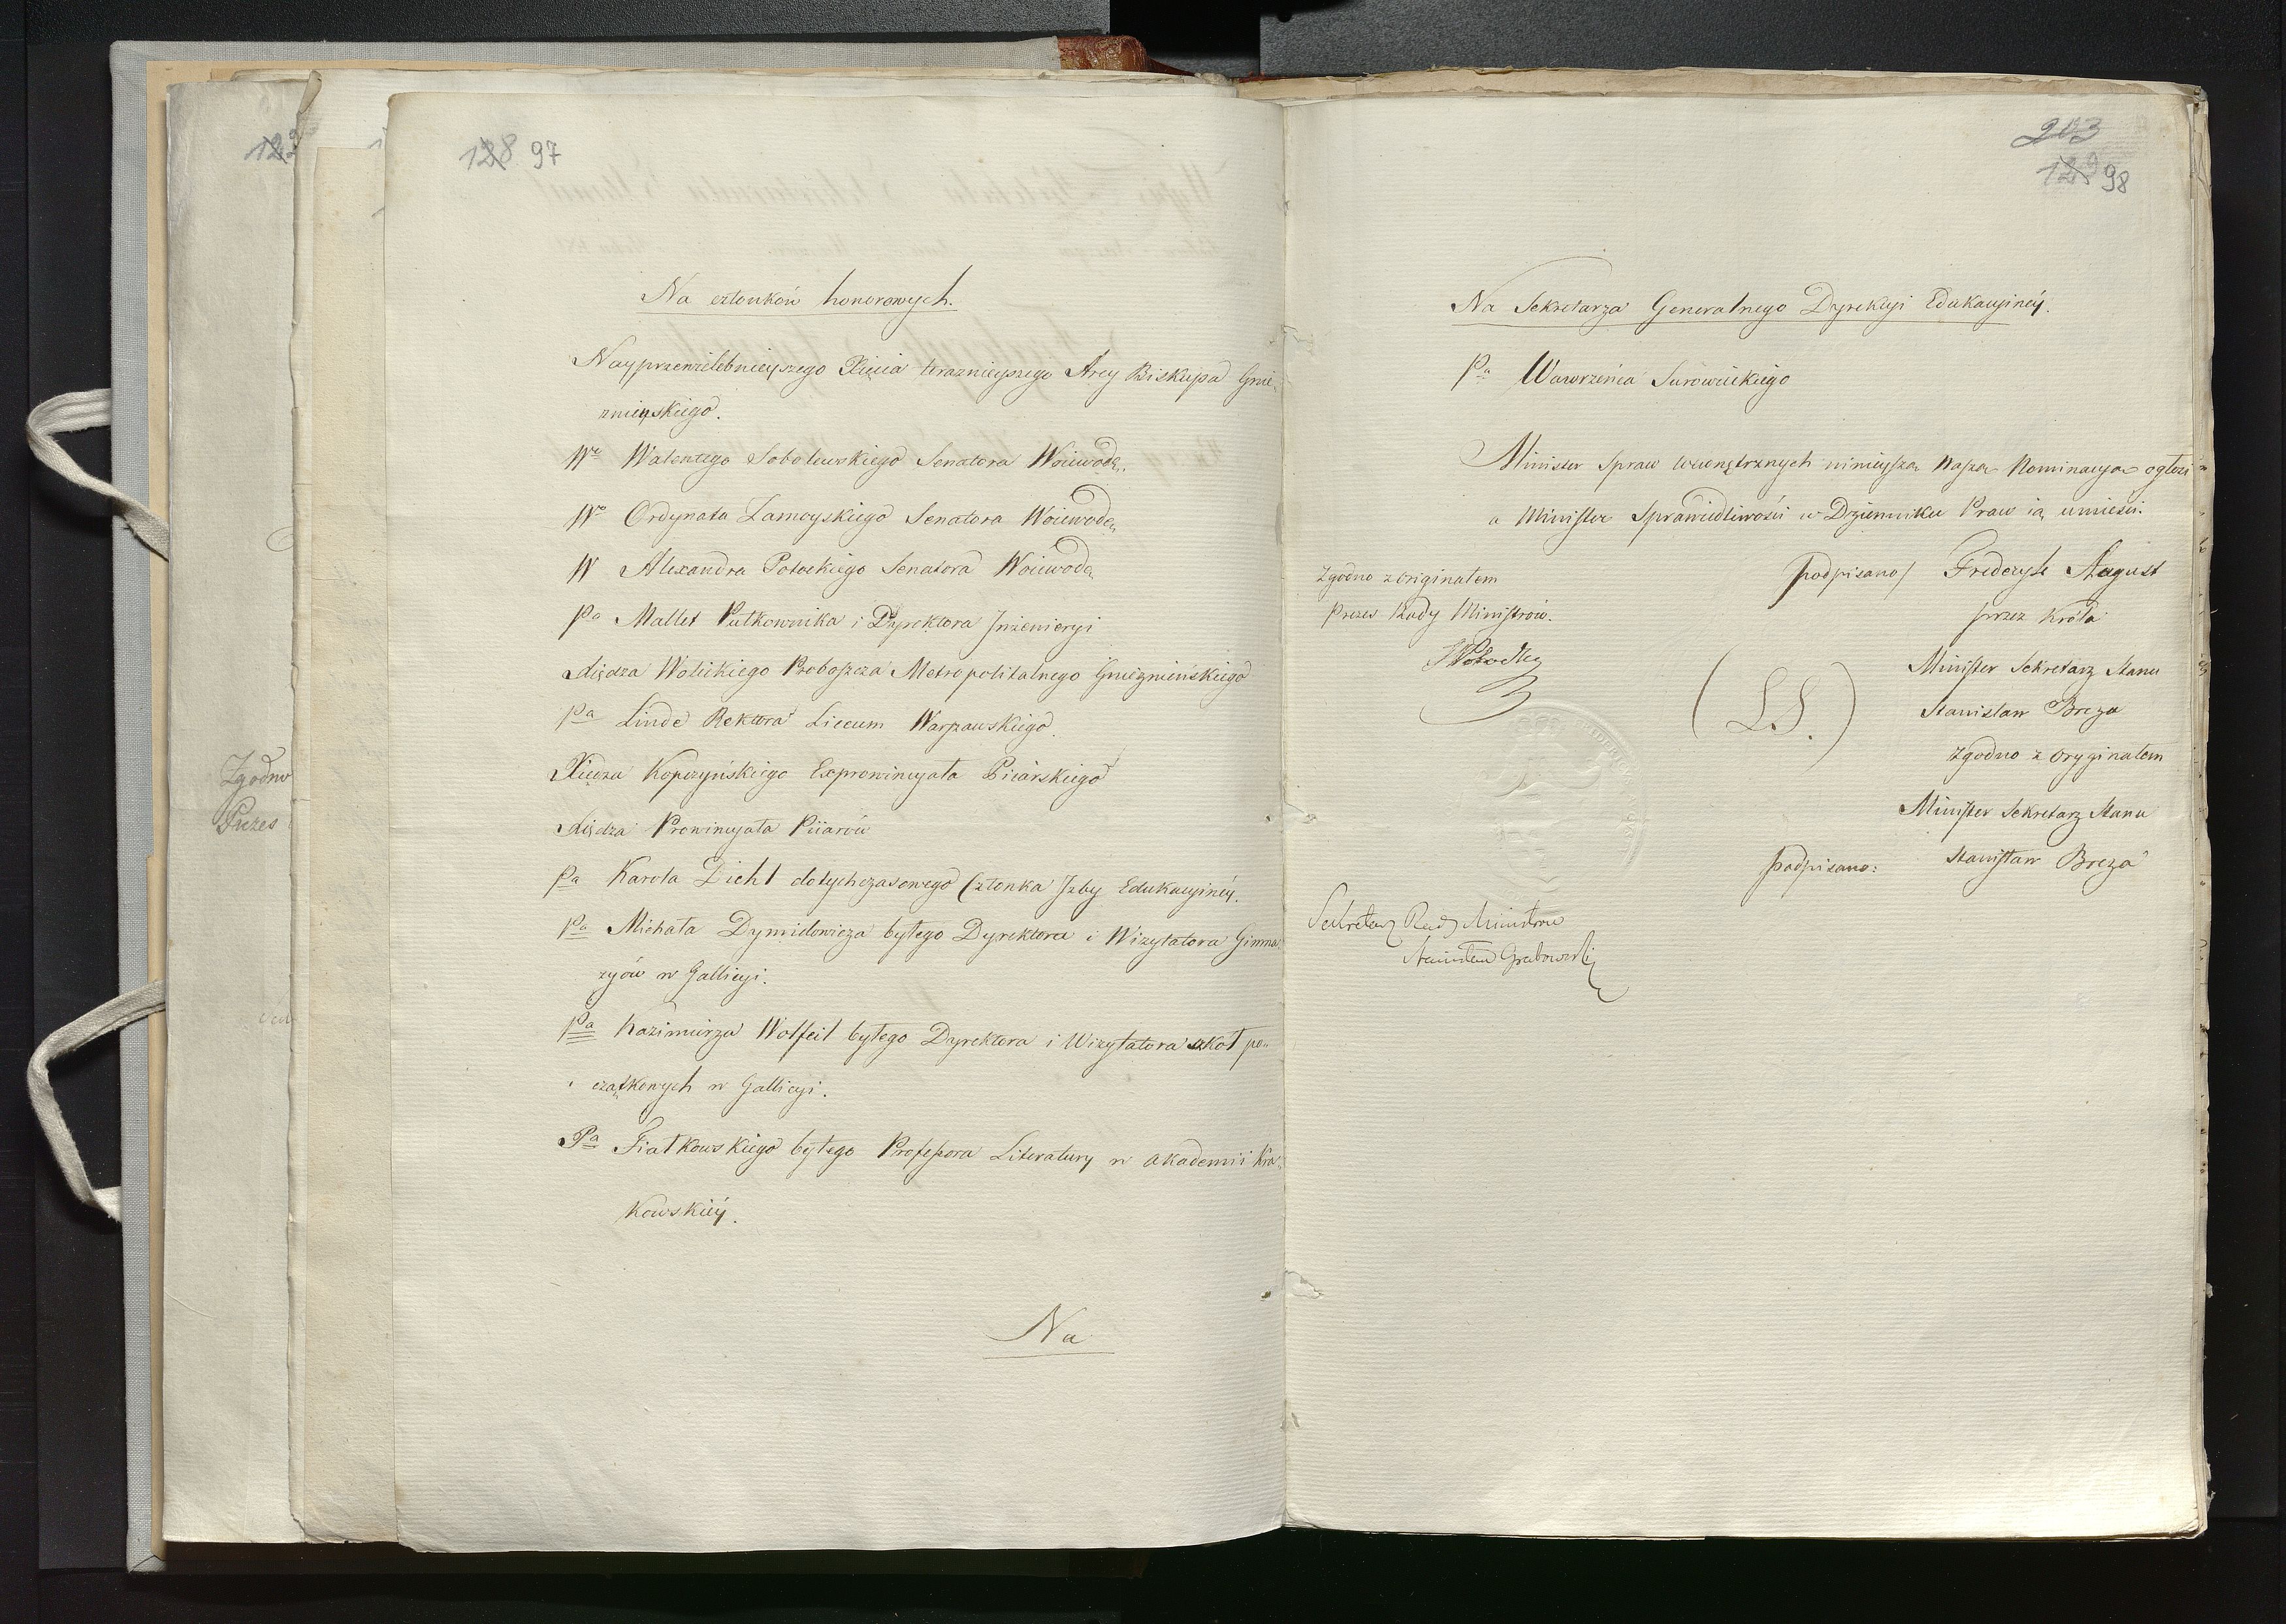 128 97
Na członków honorowych.
Nayprzewielebnieyszego Xięcia teraznieyszego Arcy Biskupa Gnie-
znieyskiego.
Wo Walentego Sobolewskiego Senatora Woiewodę.
Wo Ordynata Zamoyskiego Senatora Woiewodę
W Alexandra Potockiego Senatora Woiewodę
Pa Mallet Pułkownika i Dyrektora Inżenieryi
Xiędza Wolickiego Proboszcza Metropolitalnego Gnieznieńskiego
Pa Linde Rektora Liceum Warszawskiego.
Xiedza Kopczyńskiego Exprowincyała Piiarskiego
Xiędza Prowincyała Piiarów
Pa Karola Diehl dotychczasowego Członka Izby Edukacyiney.
Pa Michała Dymidowicza byłego Dyrektora i Wizytatora Gimna-
zyów w Gallicyi.
Pa Kazimierza Wolfeil byłego Dyrektora i Wizytatora szkół po-
czątkowych w Gallicyi.
Pa Fiałkowskiego byłego Professora Literatury w akademii Kra-
kowskiey.
Na
Zgodno
Prezes
203
129 98
Na Sekretarza Generalnego Dyrekcyi Edukacyiney.
Pa Wawrzeńca Surowieckiego
Minister Spraw wewnętrznych ninieyszą Naszą Nominacyą ogłosi
a Minister Sprawiedliwości w Dzienniku Praw ią umieści.
Zgodno z originałem
Prezes Rady Ministrów.
podpisano/ Frederyk August
przez Króla
(L.S.)
Minister Sekretarz Stanu
Stanisław Breza
Zgodno z oryginałem
Minister Sekretarz Stanu
podpisano: Stanisław Breza
Sekretarz Rady Ministrów
Stanisław Grabowski